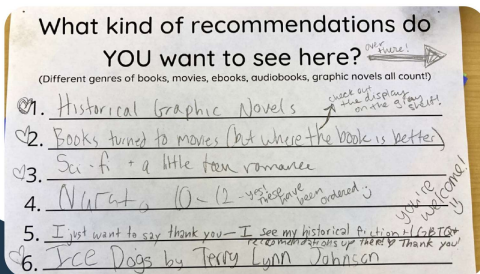 What kind of recommendations do
YOU want to see here?
over there!
(Different genres of books, movies, ebooks, audiobooks, graphic novels all count!)
1. Historical Graphic Novels
check out the display on the gray shelf!
2. Books turned to movies (but where the book is better)
3. Sci-fi + a little teen romance
4. 10-12 - yes! these have been ordered :)
you're welcome! :)
5. I just want to say thank you— I see my historical fiction + LGBTQ+
recomendations up there! Thank you!
6. Ice Dogs by Terry Lynn Johnson